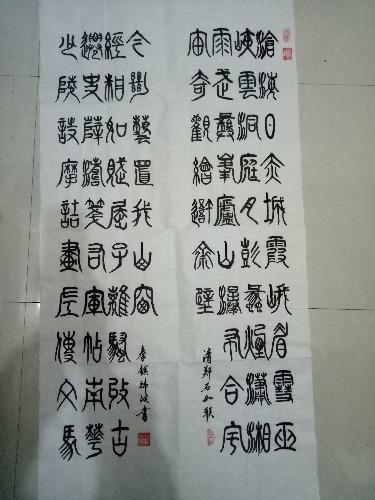 滄海日赤城霞峨眉雪巫
峽雲洞庭月彭蠡煙瀟湘
雨武彝峯廬山瀑布合宇
宙奇觀繪吾齋壁
清鄧石如聯
少陵詩摩詰畫左傳文馬
遷史薛濤箋右軍帖南華
經相如賦屈子離騷收古
今絕藝置我山窗
波書